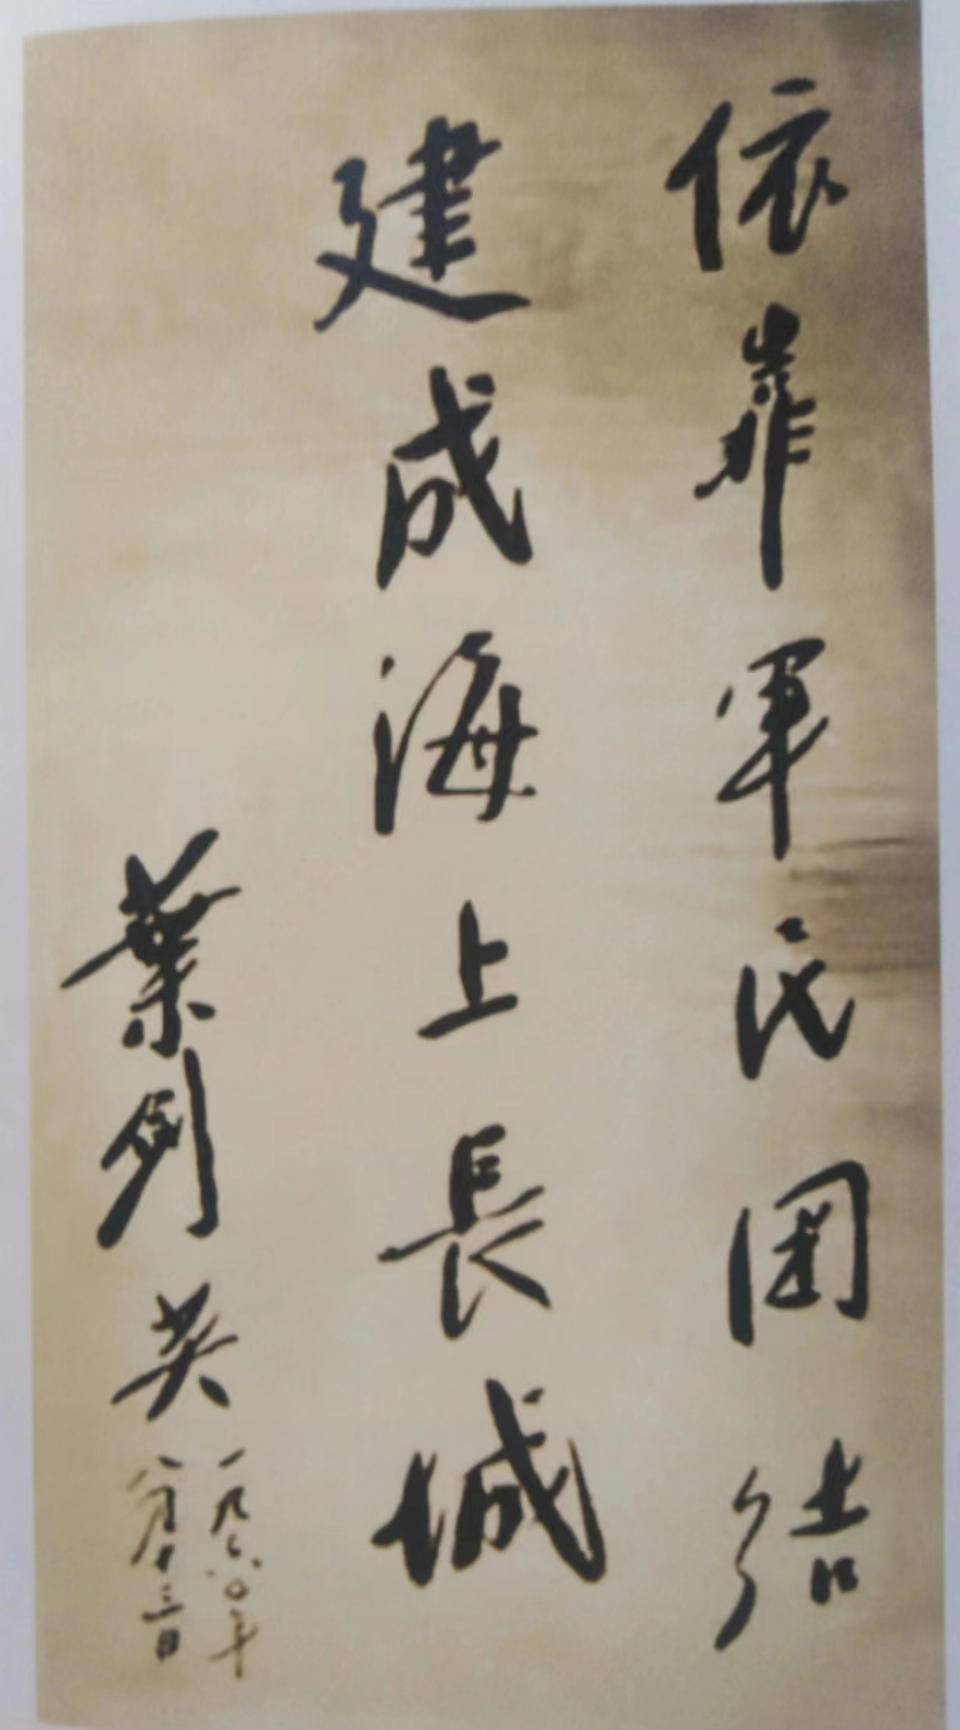 依靠军民团结
建成海上長城
葉剑英
一九六〇年
八月十三日